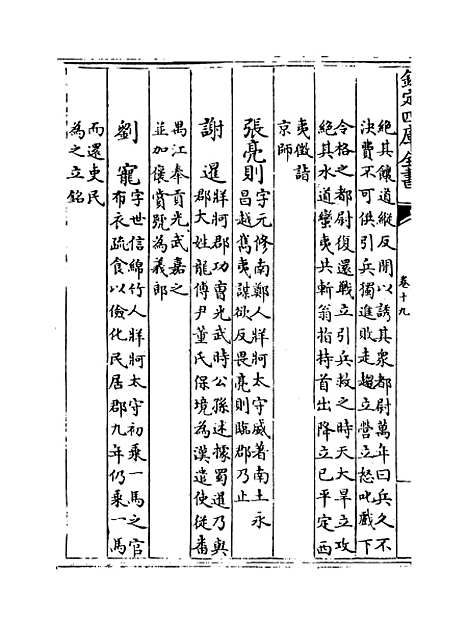 欽定四庫全書
卷十九
絶其饟道縱反間以誘其衆都尉萬年曰兵久不
決費不可供引兵獨進敗走趨立營立怒叱戲下
令格之都尉復還戰立引兵救之時天大旱立攻
絶其水道蠻夷共斬翁指持首出降立已平定西
夷徵詣
京師
張亮則字元修南鄭人牂牁太守威著南土永
昌越嶲夷謀欲反畏亮則臨郡乃止
謝暹牂牁郡功曹光武時公孫述據蜀暹乃與
郡大姓龍傅尹董氏保境為漢遣使從番
禺江奉貢光武嘉之
並加襃賞號為義郎
劉寵字世信綿竹人牂牁太守初乘一馬之官
布衣疏食以儉化民居郡九年仍乘一馬
而還吏民
為之立銘